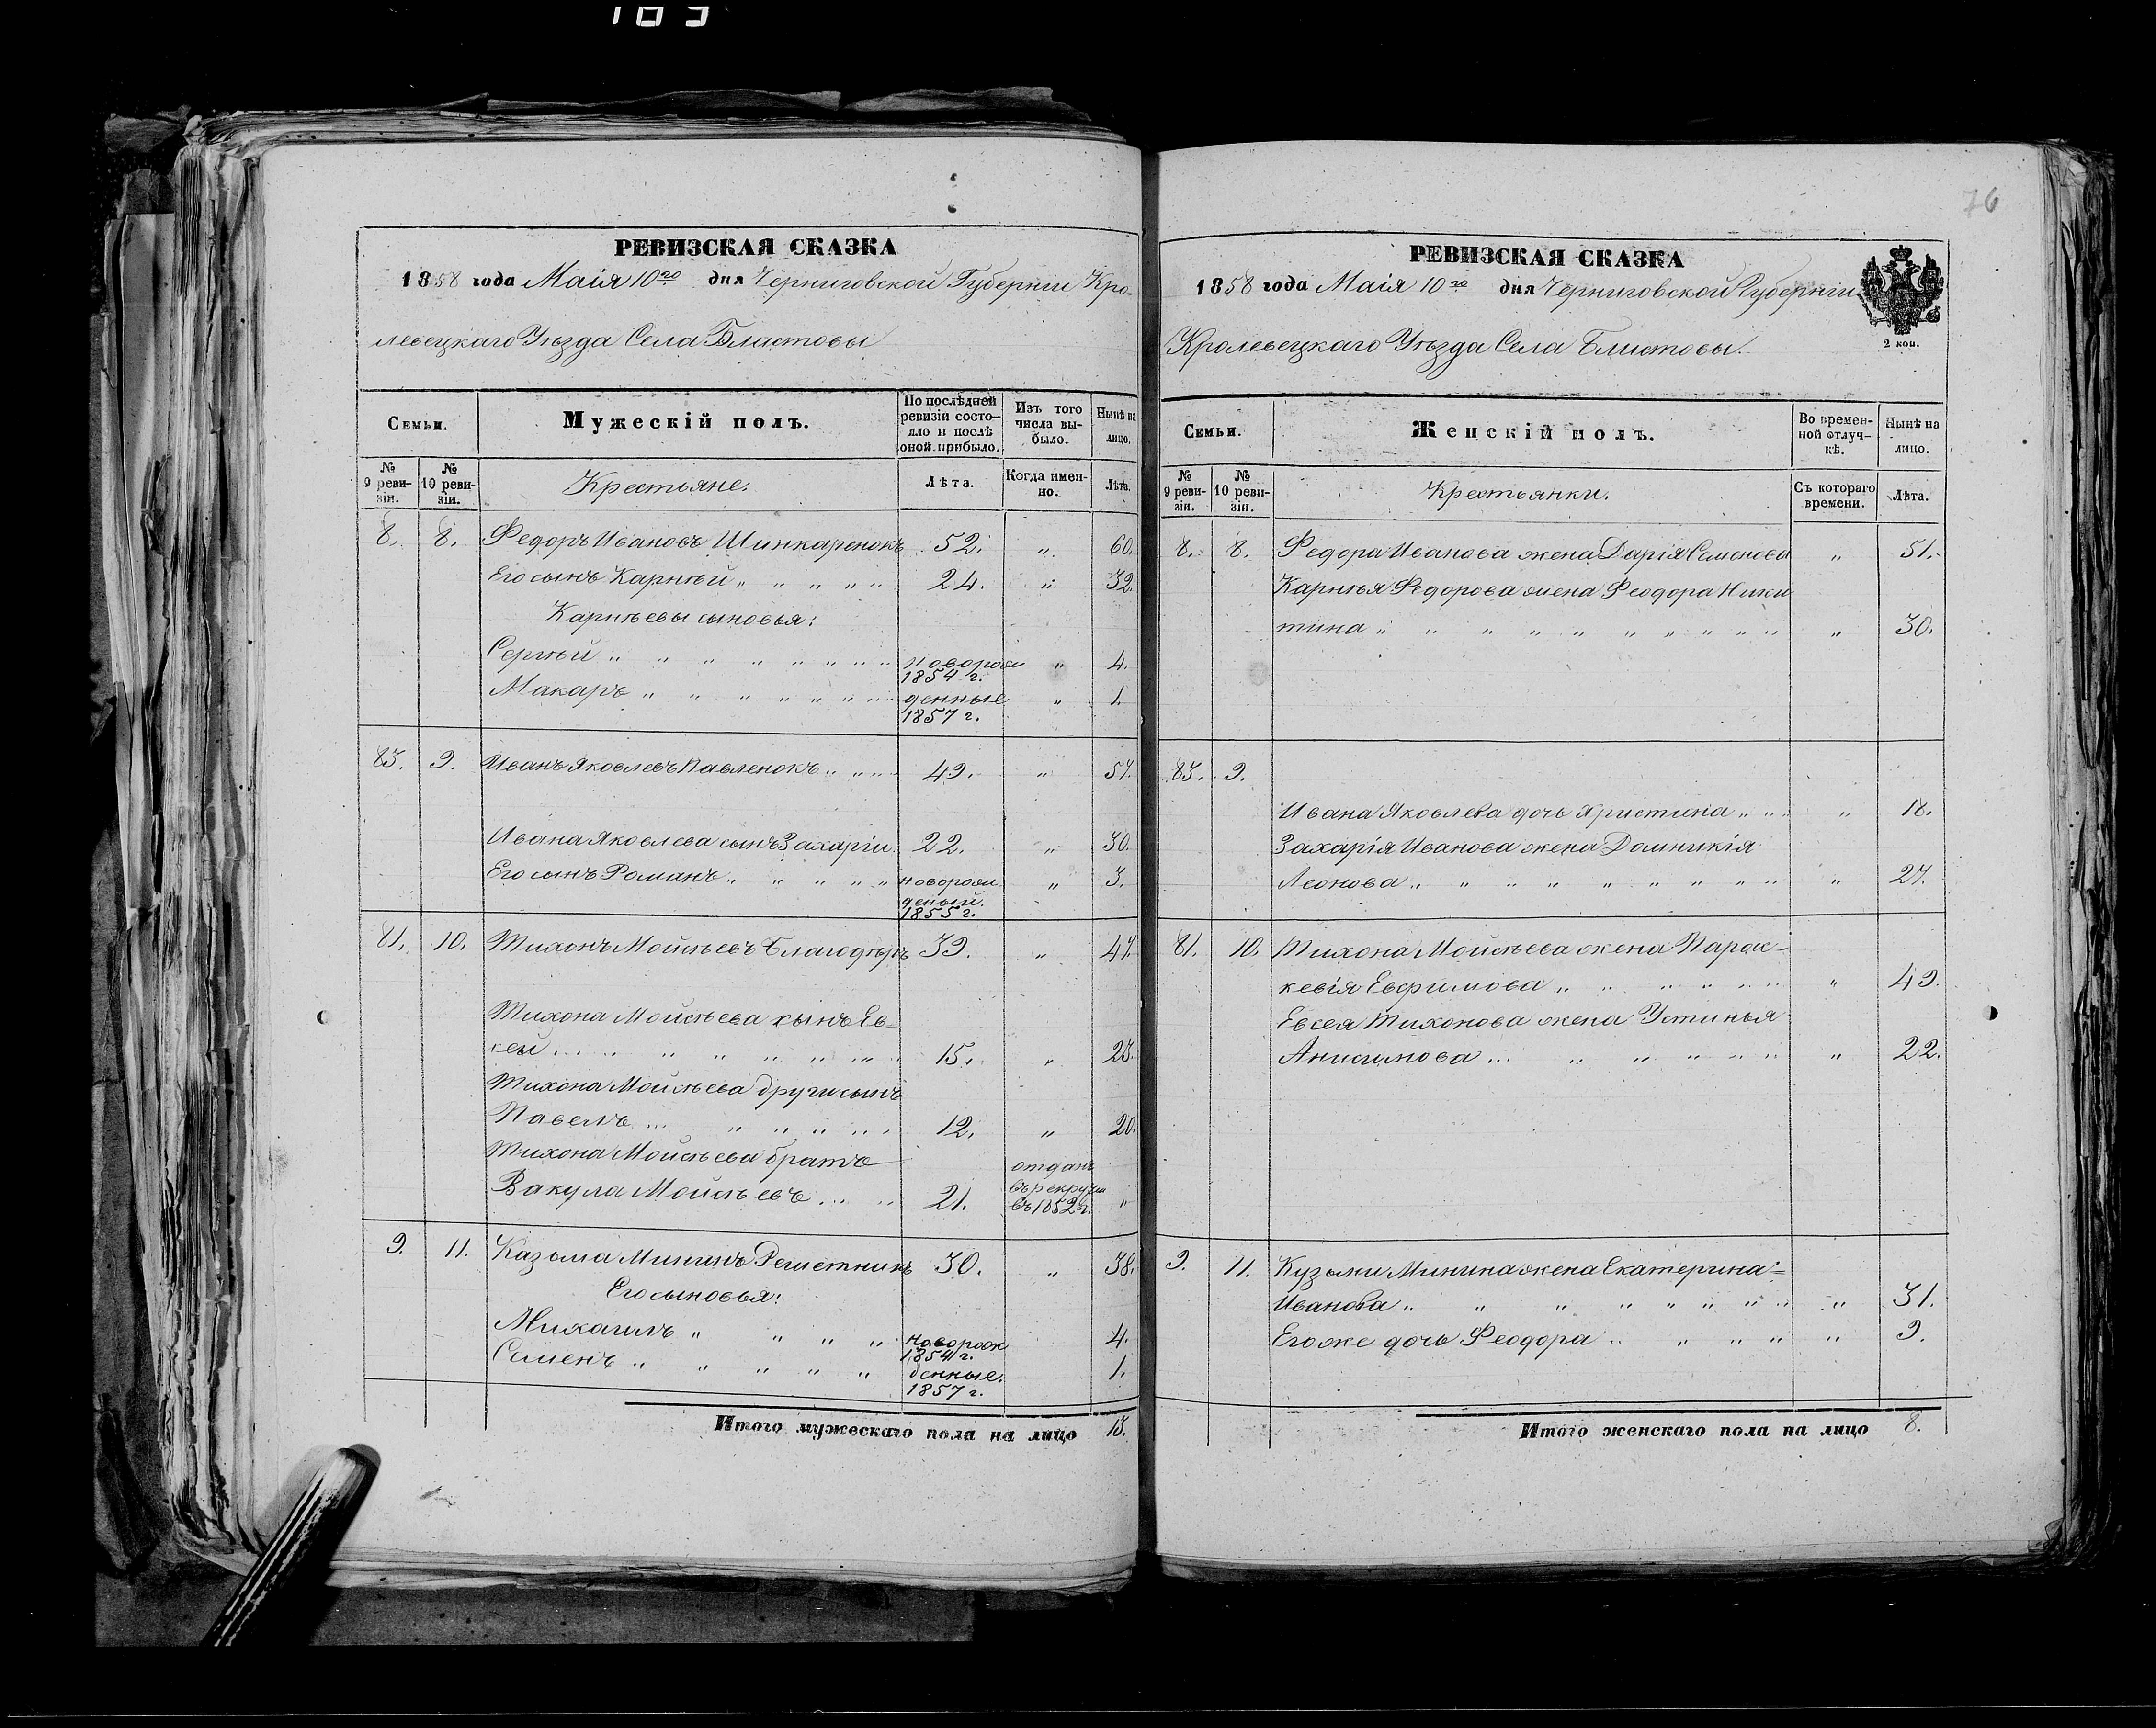 183
РЕВИЗСКАЯ СКАЗКА
1858 года Маія 10го дня Черниговской Губерніи Кро-
левецкаго Уѣзда Села Блистовы
Семьи.
Мужескій полъ.
По послѣдней ревизіи состо-яло и послѣ оной прибыло.
Изъ того числа вы-было.
Нынѣ на лицо.
№ 9 реви-зіи.
№ 10 реви-зіи.
Крестьяне.
Лѣта.
Когда имен-но.
Лѣта.
8. 8. Федоръ Ивановъ Шинкаренокъ 52. " 60.
Его сынъ Карнѣй " " " " " 24. " 32.
Карнѣевы сыновья:
Сергѣй " " " " " " " " новорож 1854 г. " 4.
Макаръ " " " " " " " " денные 1857 г. " 1.
83. 9. Иванъ Яковлевъ Павленокъ " " " " 49. " 57.
Ивана Яковлева сынъ Захарій 22. " 30.
Его сынъ Романъ " " " " " новорож деный. 1855 г. " 3.
81. 10. Тихонъ Мойсѣевъ Благодѣръ 39. " 47.
Тихона Мойсѣева сынъ Ев-
сей " " " " " " " " 15. " 23.
Тихона Мойсѣева други сынъ
Павелъ " " " " " " 12. " 20.
Тихона Мойсѣева братъ
Вакула Мойсѣевъ " " " 21. отданъ въ рекруты въ 1852 г. "
9. 11. Казьма Мининъ Решетникъ 30. " 38.
Его сыновья:
Михаилъ " " " " " новорож 1854 г. 4.
Семенъ " " " " " денные. 1857 г. 1.
Итого мужескаго пола на лицо 13.
76
РЕВИЗСКАЯ СКАЗКА
1858 года Маія 10го дня Черниговской Губерніи
Кролевецкаго Уѣзда Села Блистовы.
2 коп.
Семьи.
Женскій полъ.
Во времен-ной отлуч-кѣ.
Нынѣ на лицо.
№ 9 реви-зіи.
№ 10 реви-зіи.
Крестьянки.
Съ котораго времени.
Лѣта.
8. 8. Федора Иванова жена Дарія Семенова " 51.
Карнѣя Федорова жена Феодора Ники
тина " " " " " " " " " " " 30.
83. 9.
Ивана Яковлева дочь Христина " " " " 18.
Захарія Иванова жена Домникія
Леонова " " " " " " " " " " 27.
81. 10. Тихона Мойсѣева жена Парас-
кевія Евфимова " " " " " " " 49.
Евсея Тихонова жена Устинья
Анисимова " " " " " " " 22.
9. 11. Кузьмы Минина жена Екатерина
Иванова " " " " " " " " " 31.
Его же дочь Феодора " " " " " 9.
Итого женскаго пола на лицо 8.